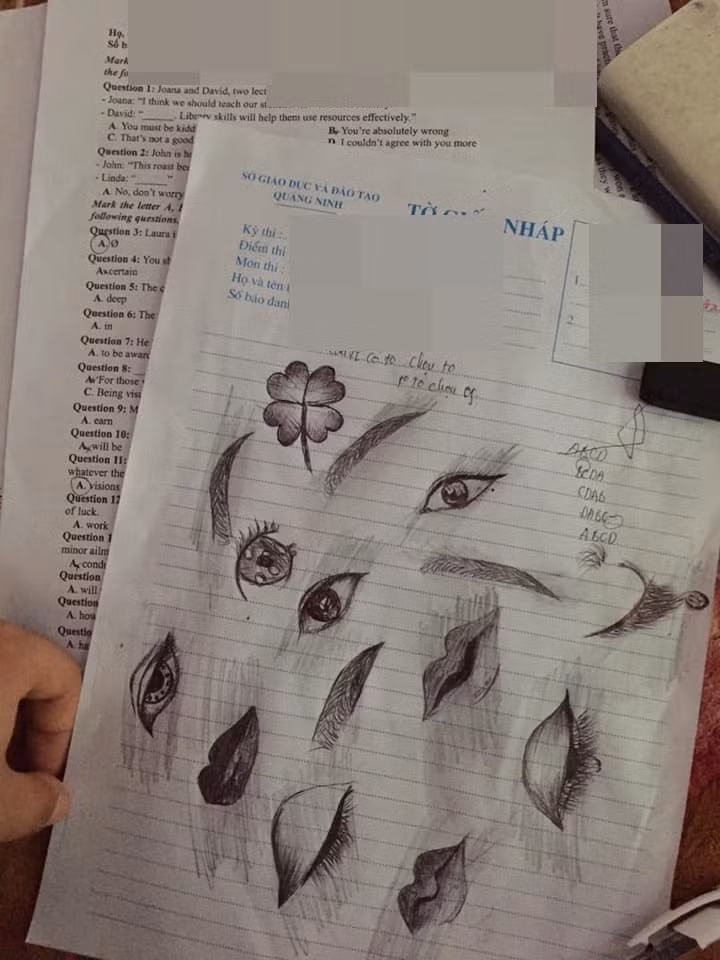 Họ,
Số b
Mark
the fo
Question 1: Joana and David, two lect
- Joana: "I think we should teach our st
- David: "______. Library skills will help them use resources effectively."
A. You must be kidd
B. You're absolutely wrong
C. That's not a good
D. I couldn't agree with you more
Question 2: John is h
- John: "This roast bee
- Linda: "______"
A. No, don't worry
Mark the letter A,
following questions.
Question 3: Laura i
A. Ø
Question 4: You sh
A. certain
Question 5: The c
A. deep
Question 6: The
A. in
Question 7: He
A. to be award
Question 8:
A. For those
C. Being visi
Question 9: M
A. earn
Question 10:
A. will be
Question 11:
whatever the
A. visions
Question 12
of luck.
A. work
Question 1
minor ailm
A. condi
Question
A. will
Question
A. how
Questio
A. ha
SỞ GIÁO DỤC VÀ ĐÀO TẠO
QUẢNG NINH
TỜ GIẤ NHÁP
Kỳ thi :
Điểm thi
Môn thi :
Họ và tên
Số báo dan
1.
2.
ABCD
BCDA
CDAB
DABC
ABCD